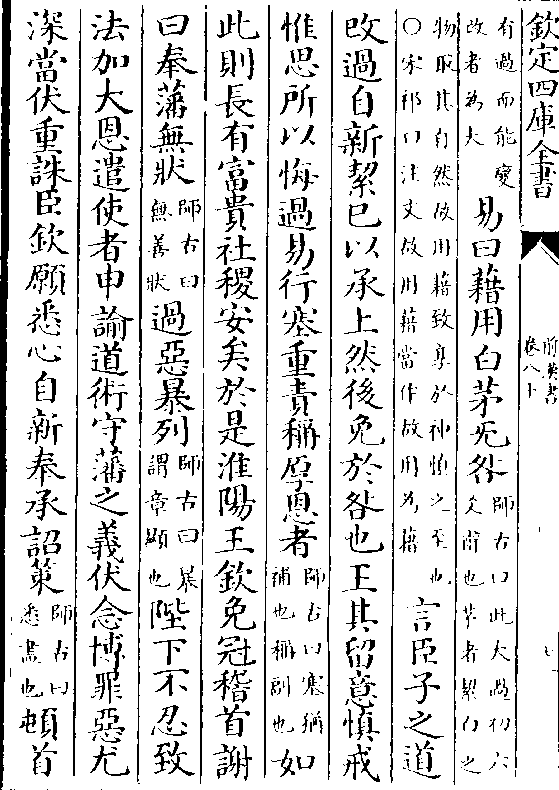 欽定四庫全書
前漢書
卷八十
有過而能變
改者為大
易曰藉用白茅无咎
師古曰此大過初六
爻辭也茅者絜白之
物取其自然故用藉致享於神慎之至也
○宋祁曰注文故用藉當作故用為藉
言臣子之道
改過自新絜已以承上然後免於咎也王其留意慎戒
惟思所以悔過易行塞重責稱厚恩者
師古曰塞猶
補也稱副也
如
此則長有富貴社稷安矣於是淮陽王欽免冠稽首謝
曰奉藩無狀
師古曰
無善狀
過惡暴列
師古曰暴
謂章顯也
陛下不忍致
法加大恩遣使者申諭道術守藩之義伏念博罪惡尤
深當伏重誅臣欽願悉心自新奉承詔策
師古曰
悉盡也
頓首